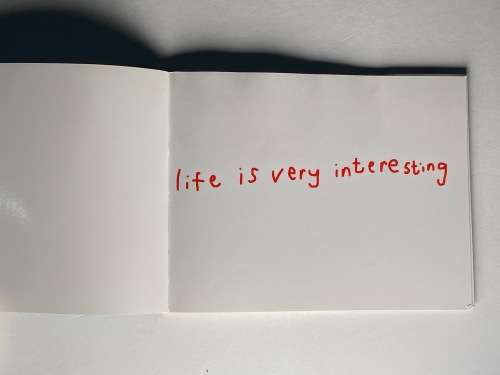 life is very interesting